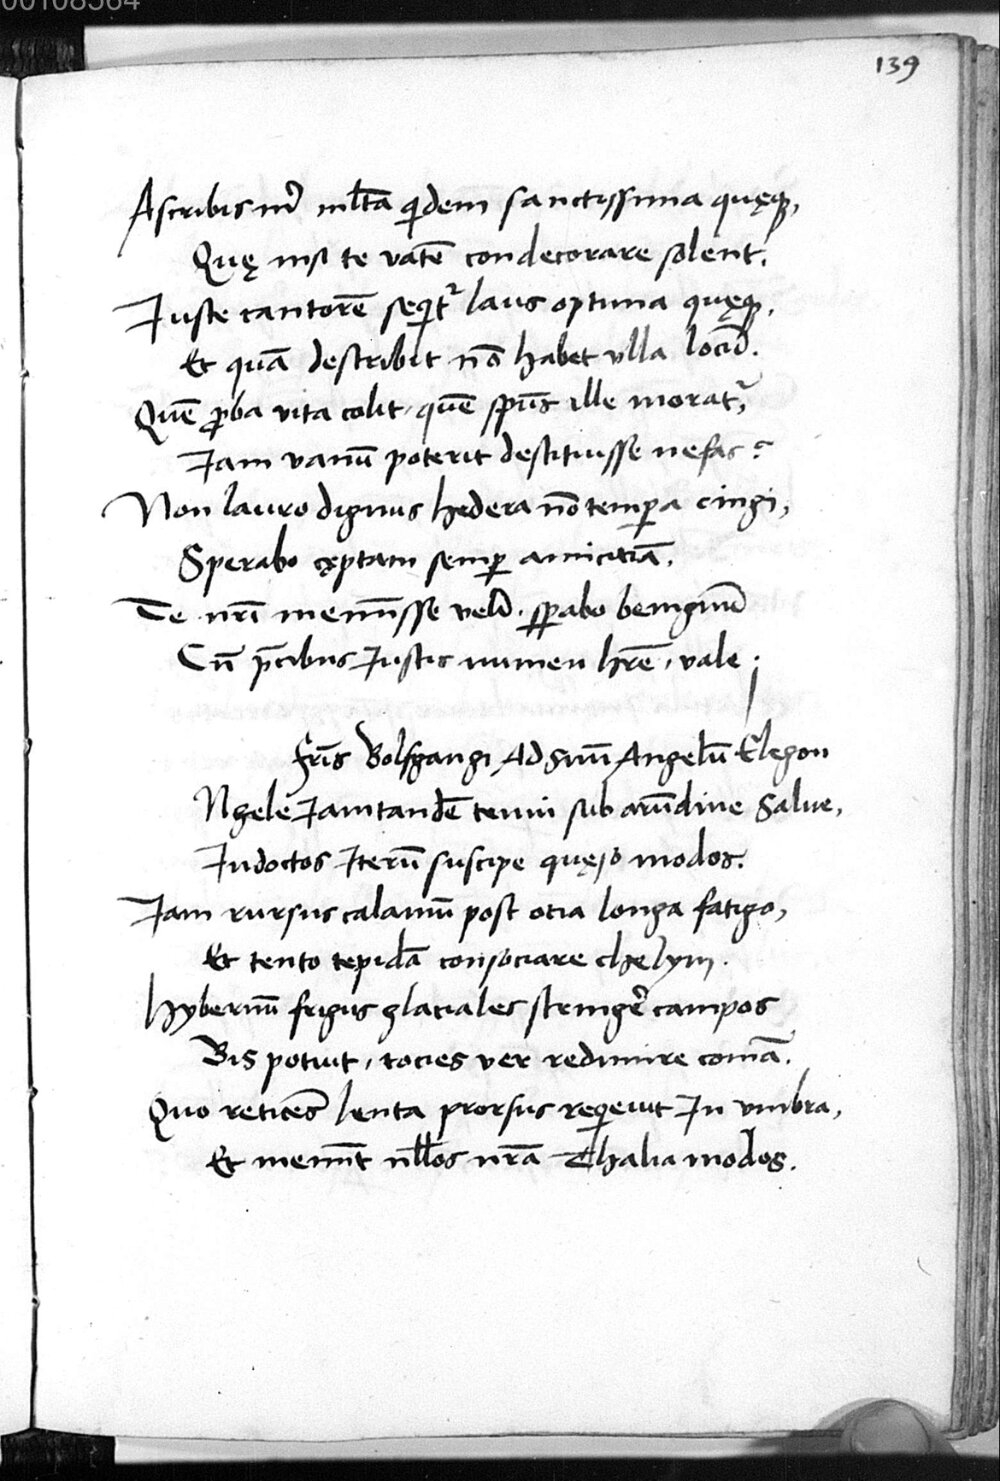 00108564
139
Ascribis mr̄ ml̄ta qidem sanctissima quęq,
Quę nisi te vatē condecorare solent.
Iuste cantorē seqit̄ laus optima quęq.
Et quā describit nō habet vlla
Quē pba vita colit, quē spūs ille morat̄,
Iam vanū poterit destituisse nefas?
Non lauro dignus hedera nō tempa cingi,
Sperabo cęptam semp amicitiā.
Te nrī meminisse . spabo benignū
Cū pcibus Iustis numen hrē, vale;
Fris Volfgangi Ad suū Angelū Elegon
Ngele Iamtandē tenui sub arūdine Salue,
Indoctos Iterū suscipe quęso modos.
Iam rursus calamū post otia longa fatigo,
Et tento tepidā consociare chelym.
Hybernū frigus glaciales stringē campos
Bis potuit, tocies ver redimire comā.
Quo reticēs lenta prorsus reqieuit In vmbra,
Et meminit nl̄los nrā Thalia modos.